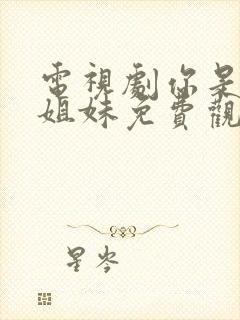 電視劇你是
姐妹免費觀
星岑